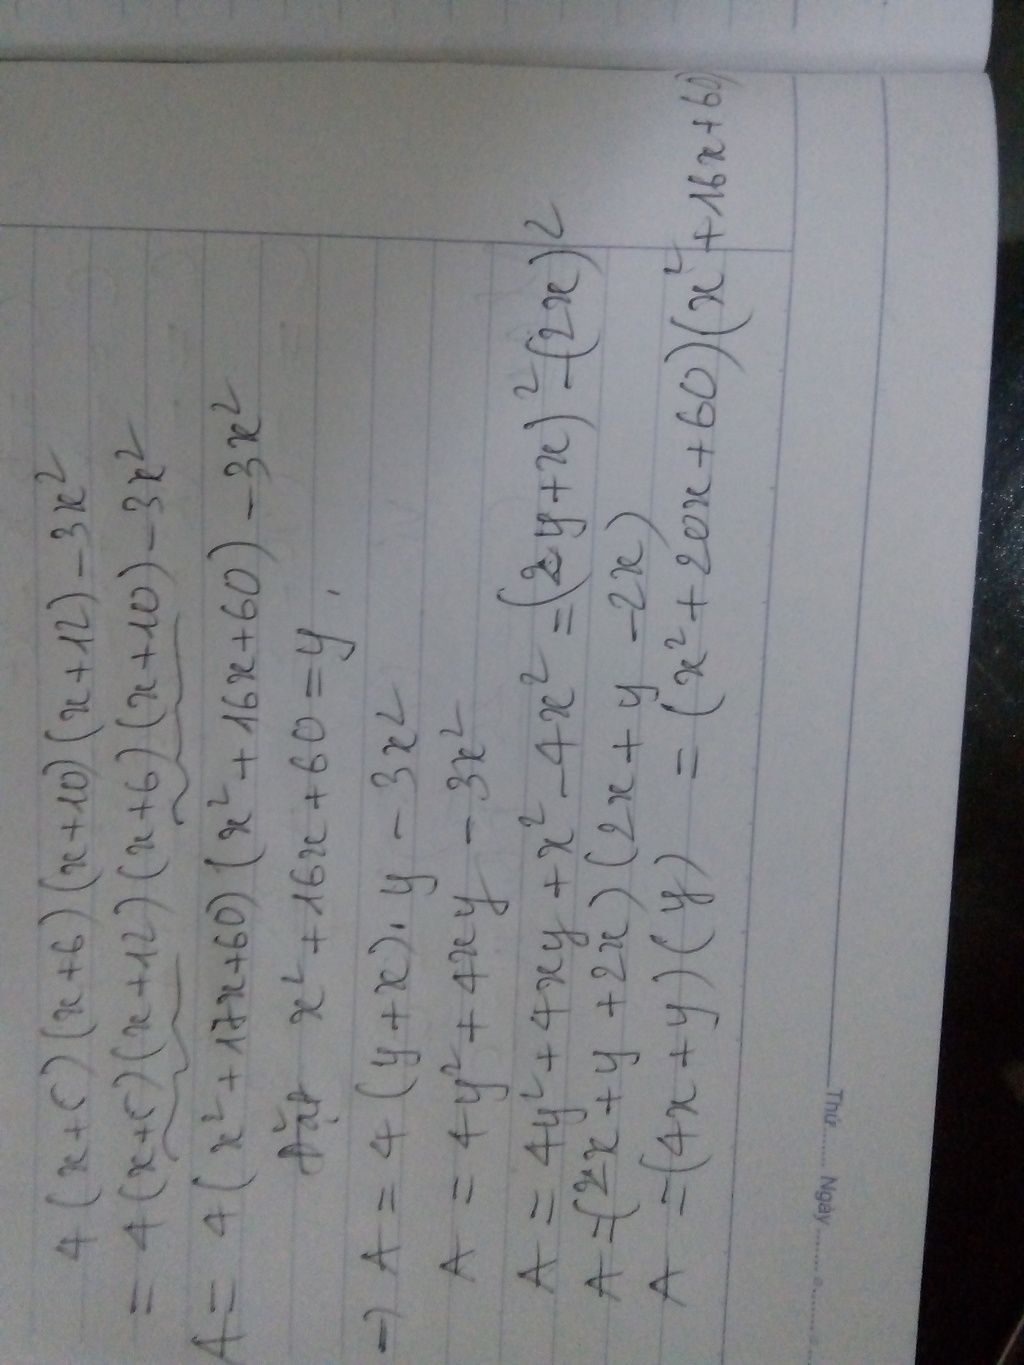 4(x+5)(x+6)(x+10)(x+12)-3x²
= 4(x+5)(x+12)(x+6)(x+10)-3x²
A = 4(x²+17x+60)(x²+16x+60)-3x²
Đặt x²+16x+60=y.
⇒ A = 4(y+x).y-3x²
A = 4y²+4xy-3x²
A = 4y²+4xy+x²-4x² = (2y+x)²-(2x)²
A = (2x+y+2x)(2x+y-2x)
A = (4x+y)(y) = (x²+20x+60)(x²+16x+60)
Thứ ........ Ngày ........